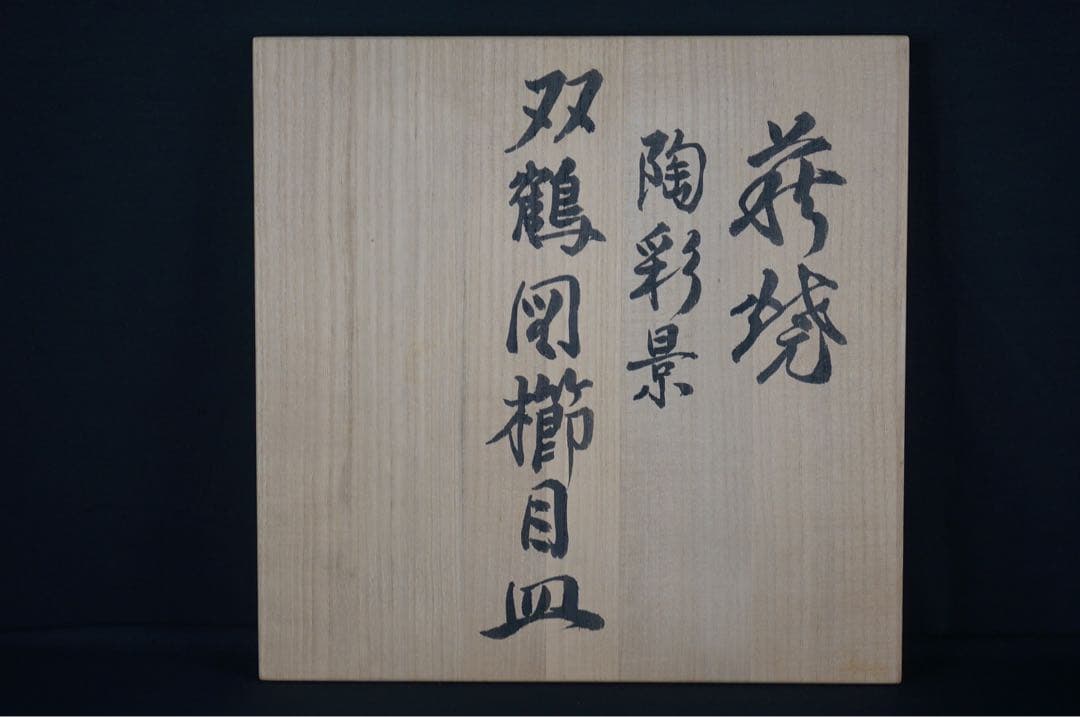 萩焼
陶彩景
双鶴図櫛目皿